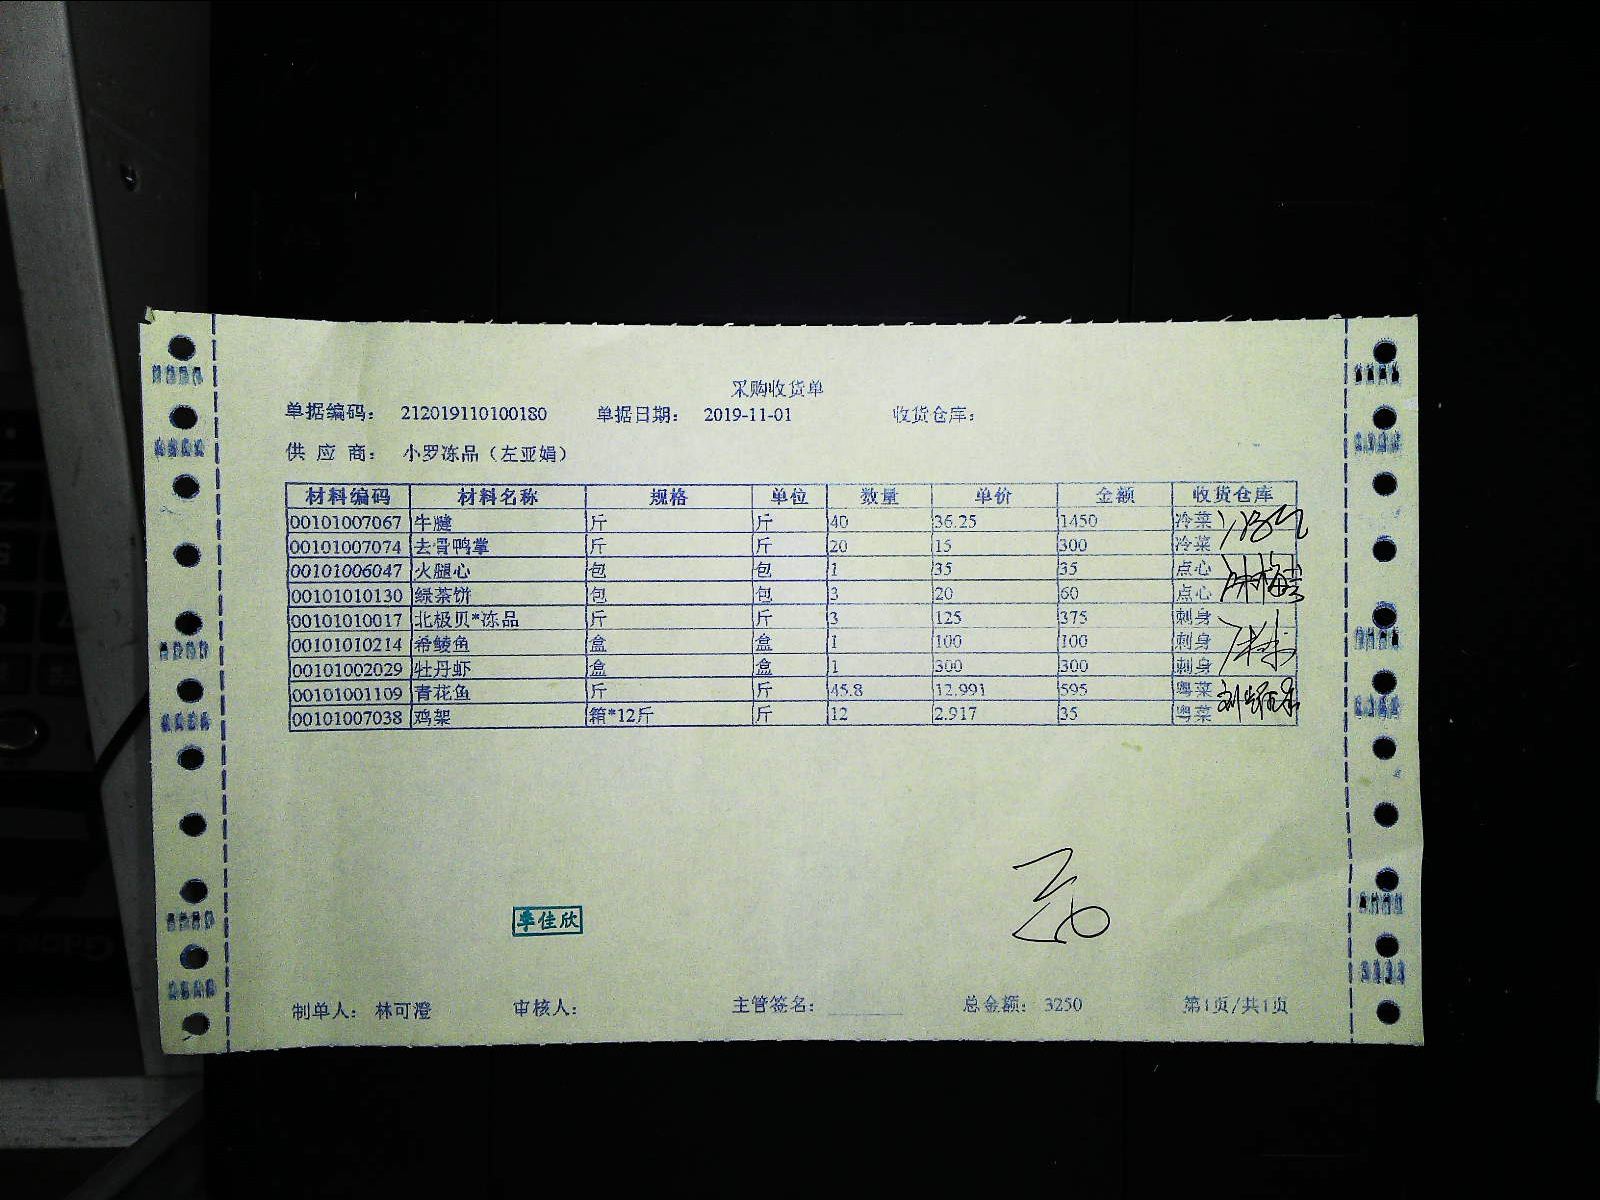 采购收货单
单据编码： 212019110100180 单据日期： 2019-11-01 收货仓库：
供 应 商： 小罗冻品（左亚娟）
材料编码 材料名称 规格 单位 数量 单价 金额 收货仓库
00101007067 牛腱 斤 斤 40 36.25 1450 冷菜
00101007074 去骨鸭掌 斤 斤 20 15 300 冷菜
00101006047 火腿心 包 包 1 35 35 点心
00101010130 绿茶饼 包 包 3 20 60 点心
00101010017 北极贝*冻品 斤 斤 3 125 375 刺身
00101010214 希鲮鱼 盒 盒 1 100 100 刺身
00101002029 牡丹虾 盒 盒 1 300 300 刺身
00101001109 青花鱼 斤 斤 45.8 12.991 595 粤菜
00101007038 鸡架 箱*12斤 斤 12 2.917 35 粤菜
李佳欣
制单人： 林可澄 审核人： 主管签名： 总金额： 3250 第1页/共1页